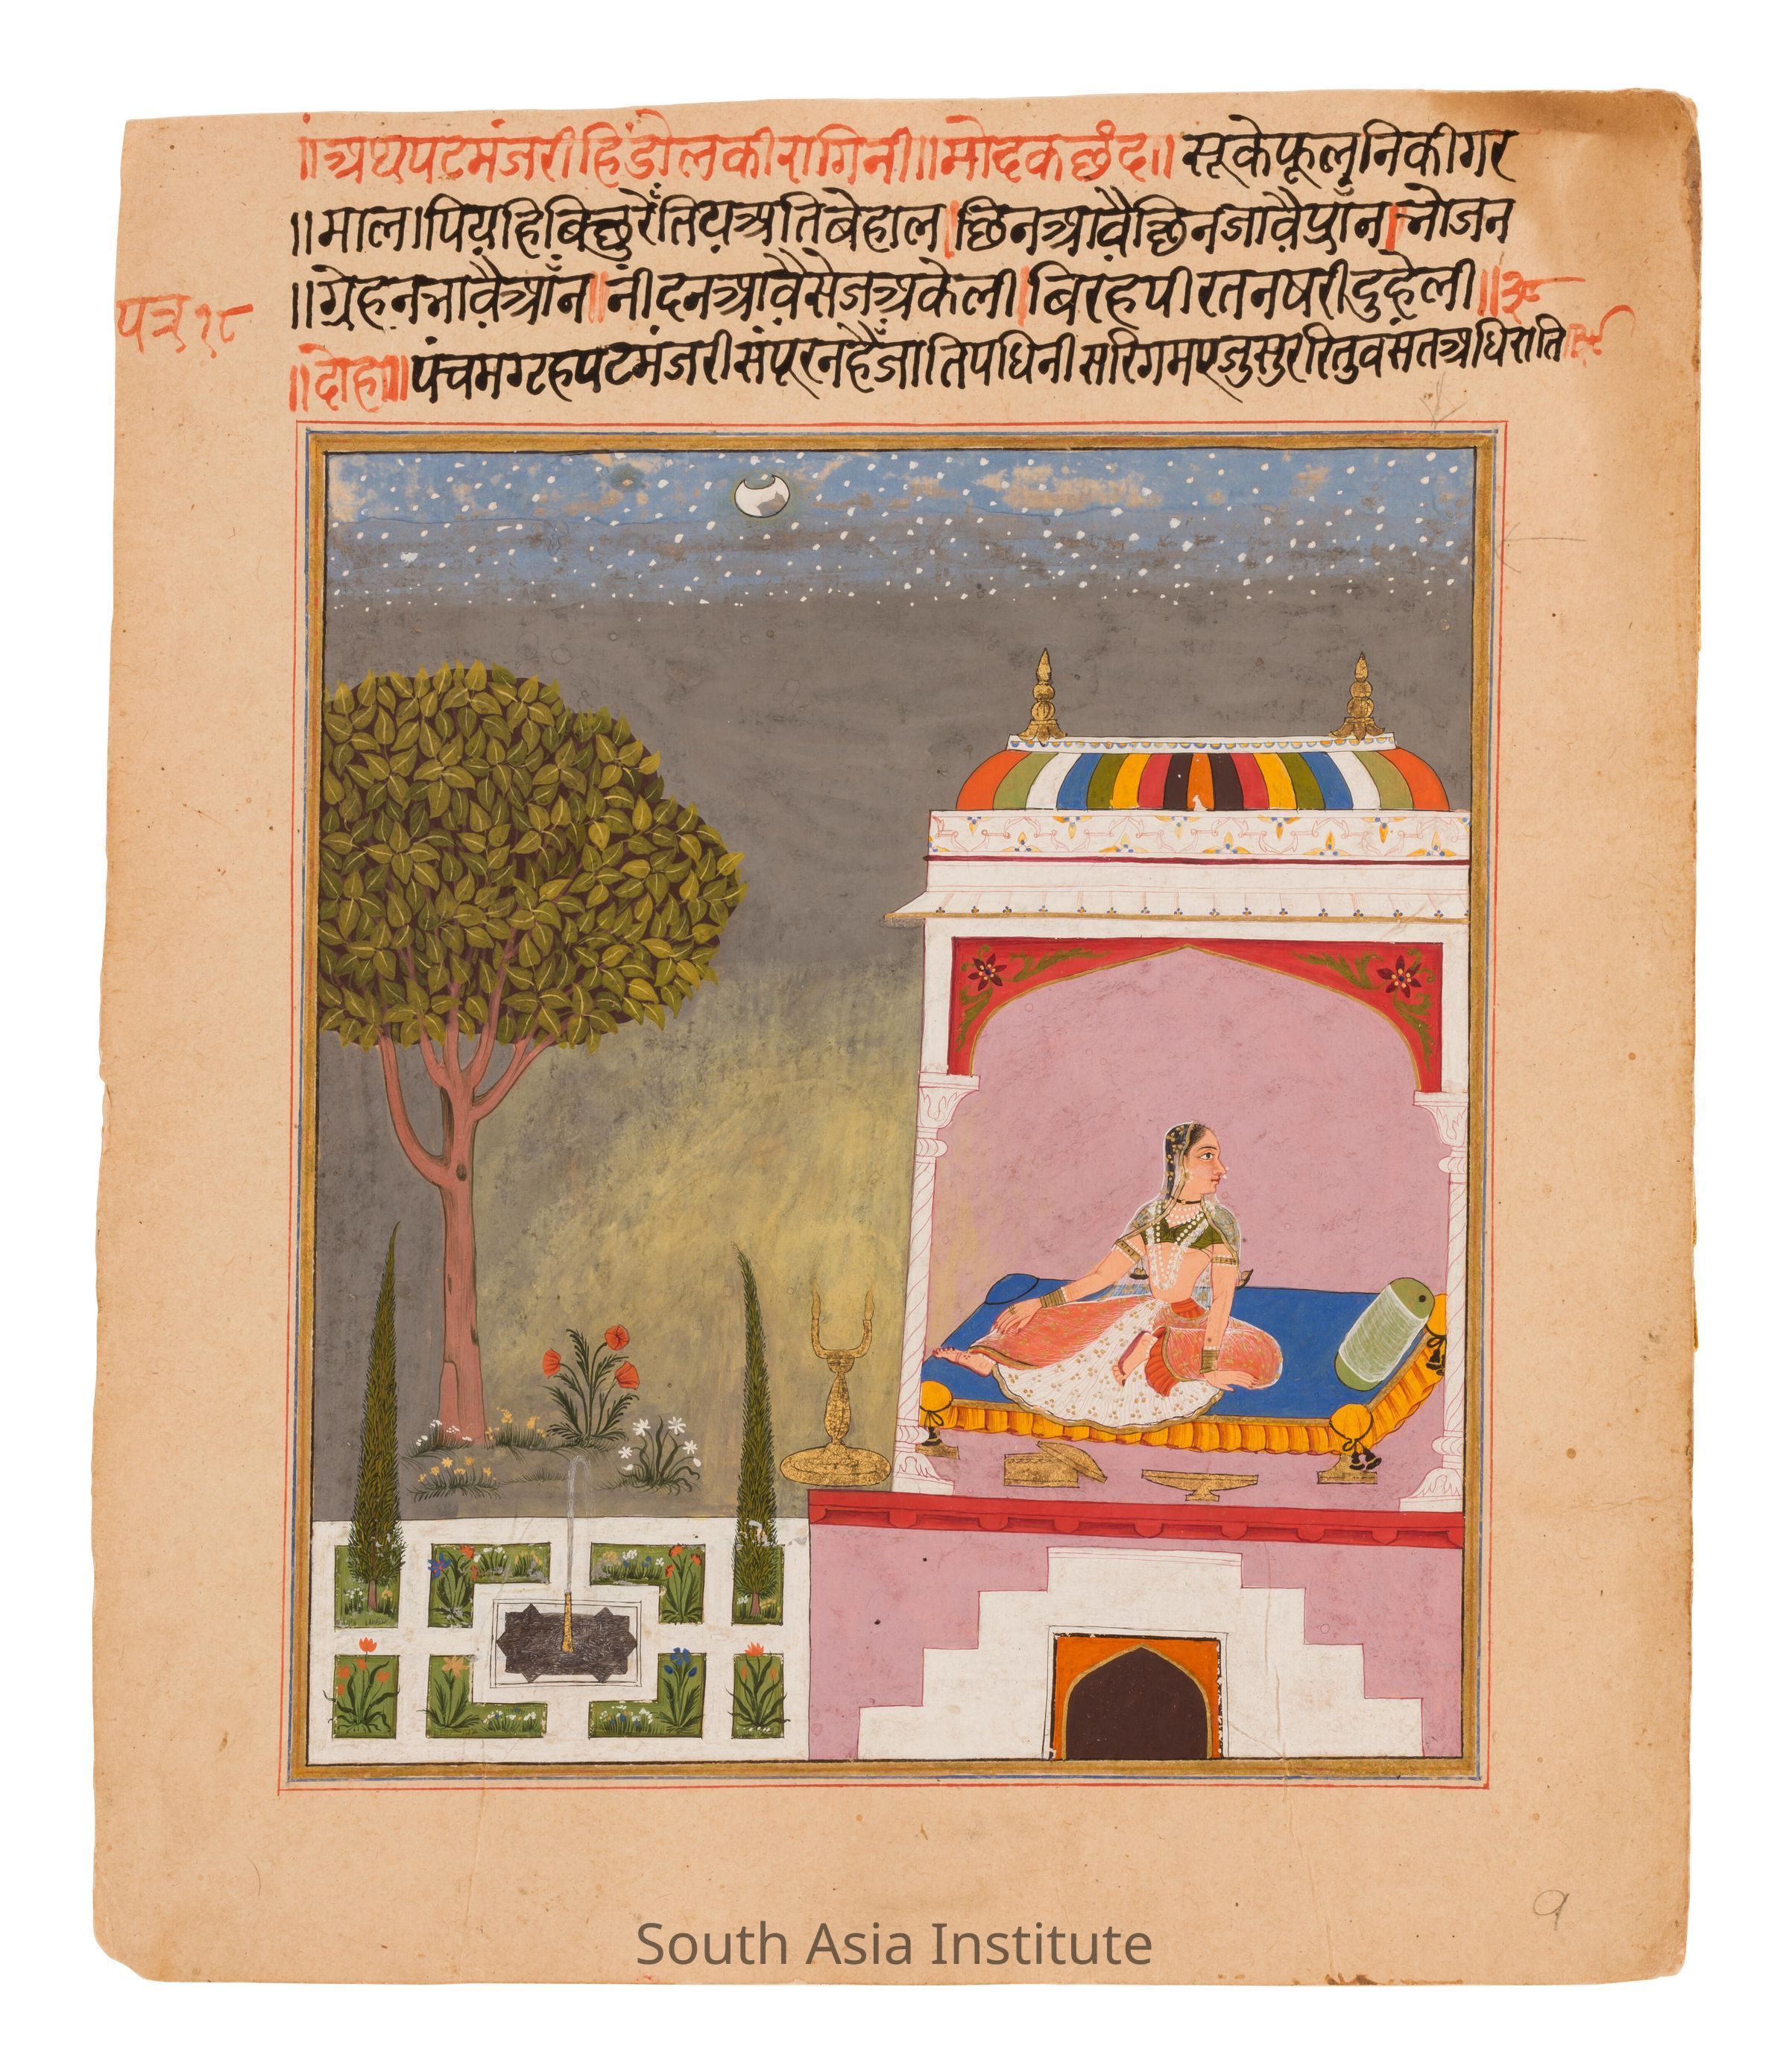 ॥अथपटमंजरीहिंडोलकीरागिनी॥मोदकछंद॥सूकेफूलनिकीगर
॥माल।पियहिबिछुरैंतियअतिबेहाल।छिनआवैछिनजावैप्राँन।भोजन
॥ग्रेहनभावैआँन॥नींदनआवैसेजअकेली।बिरहपीरतनषरीदुहेली॥३८
पत्र१८
॥दोहा॥पंचमग्टहपटमंजरीसंपूरनहैजातिपधिनीसरिगमएजुसुररितुवसंतअधिराति
South Asia Institute